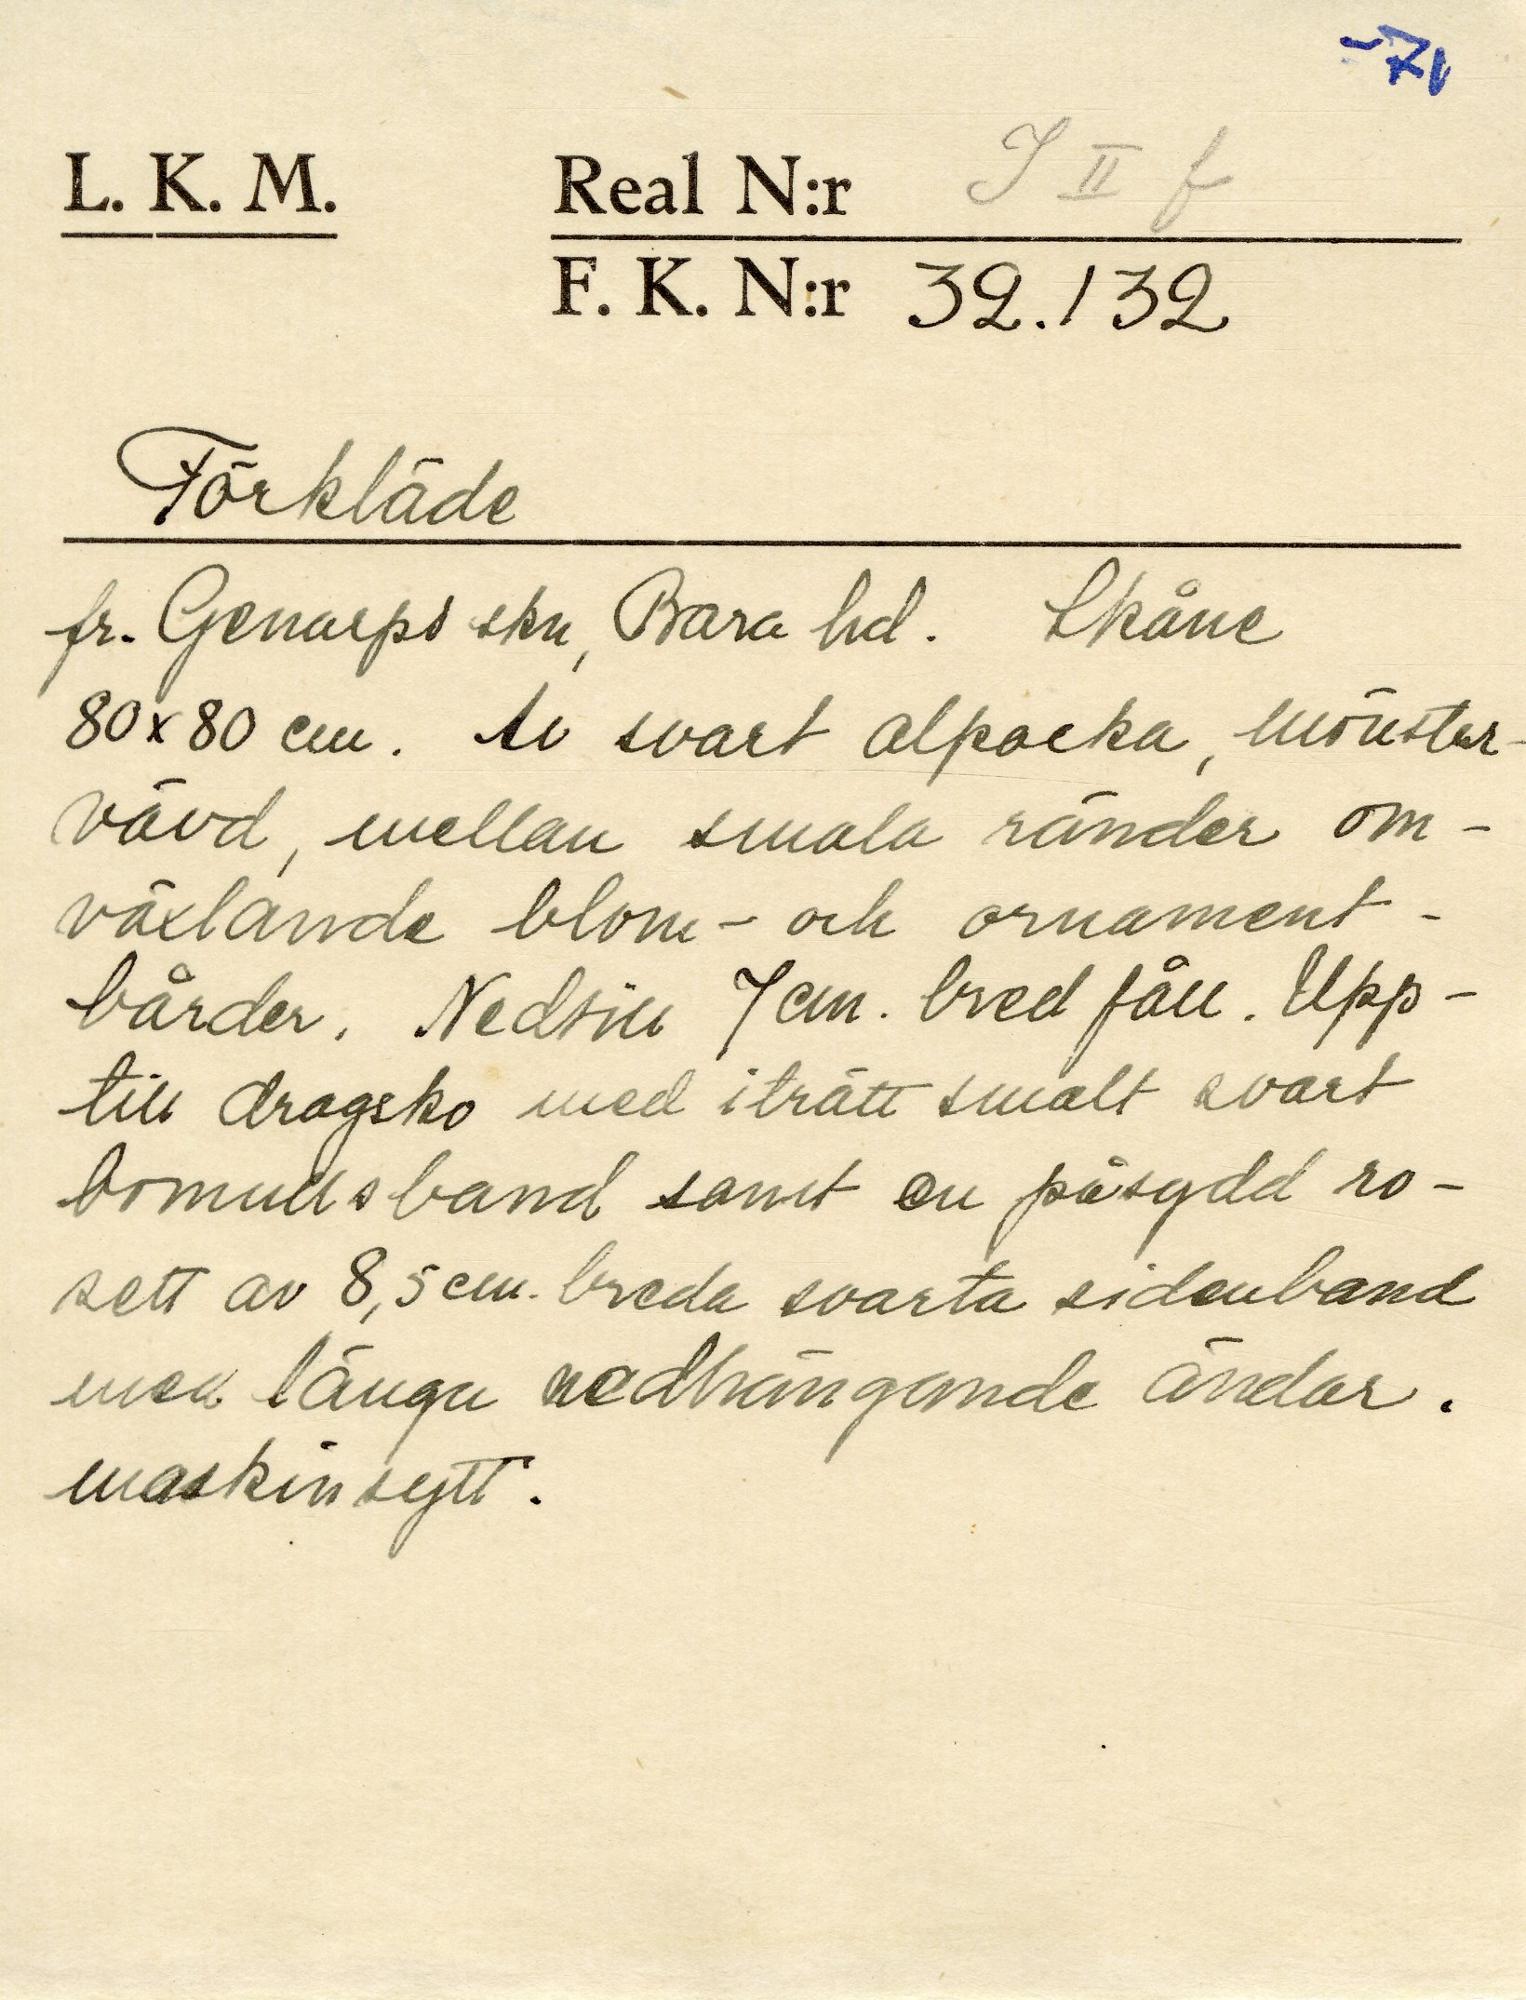 -71
L. K. M.
Real N:r I II f
F. K. N:r 32.132
Förkläde
fr. Genarps skn, Bara hd. Skåne
80x80 cm. Av svart alpacka, mönster-
vävd, mellan smala ränder om-
växlande blom- och ornament-
bårder. Nedtill 7 cm. bred fåll. Upp-
till dragsko med iträtt smalt svart
bomullsband samt en påsydd ro-
sett av 8,5 cm. breda svarta sidenband
med långa nedhängande ändar.
maskinsytt.